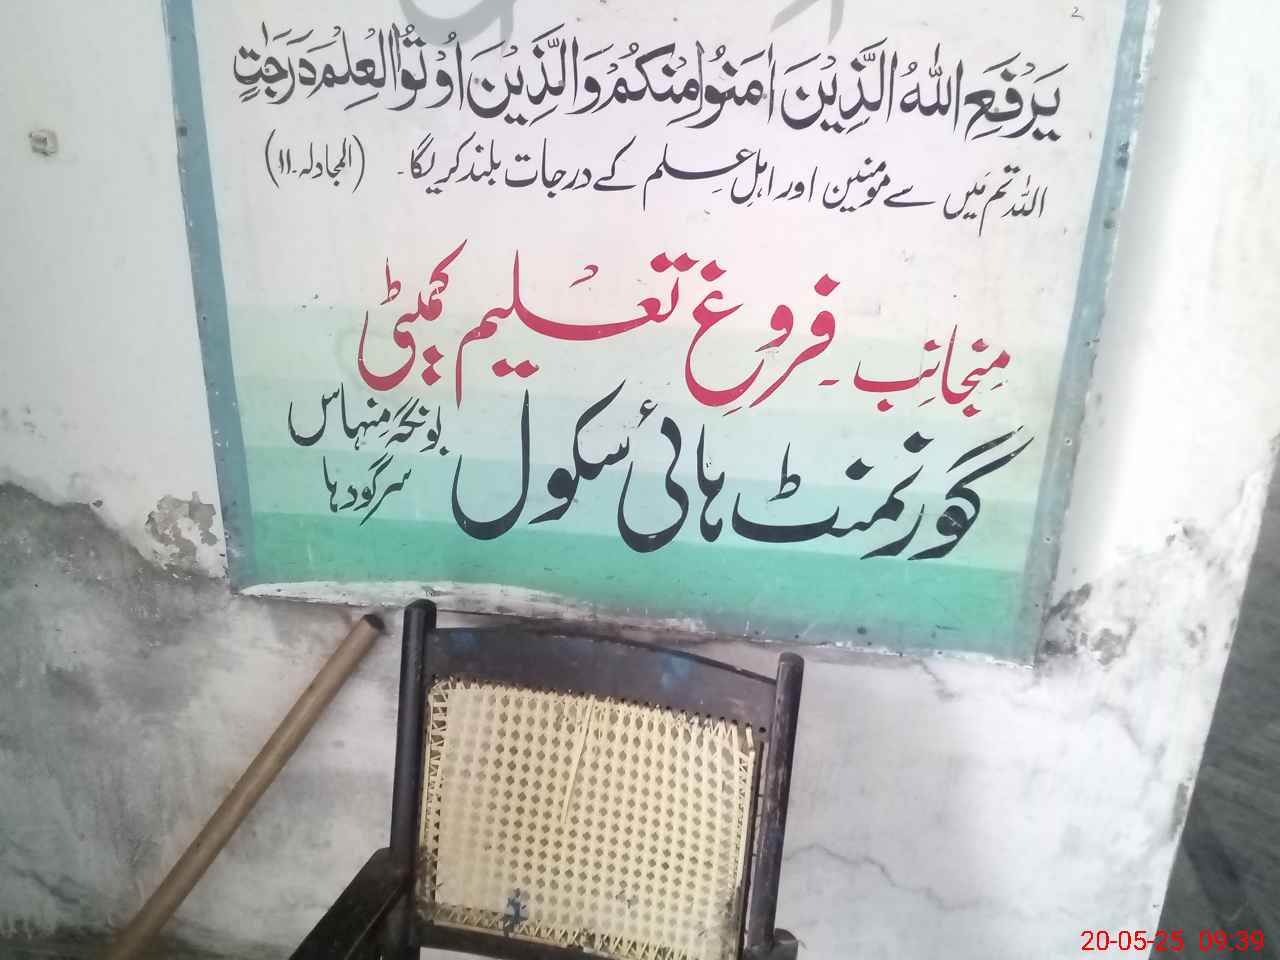 يَرْفَعِ اللّٰهُ الَّذِيْنَ اٰمَنُوْا مِنْكُمْ وَالَّذِيْنَ اُوْتُوا الْعِلْمَ دَرَجٰتٍ
اللہ تم میں سے مومنین اور اہلِ عِلم کے درجات بلند کریگا۔ (المجادلہ۔۱۱)
مِنجانِب۔ فروغِ تعلیم کمیٹی
گورنمنٹ ہائی سکول بونگہ مِنہاس
سرگودہا
20-05-25 09:39